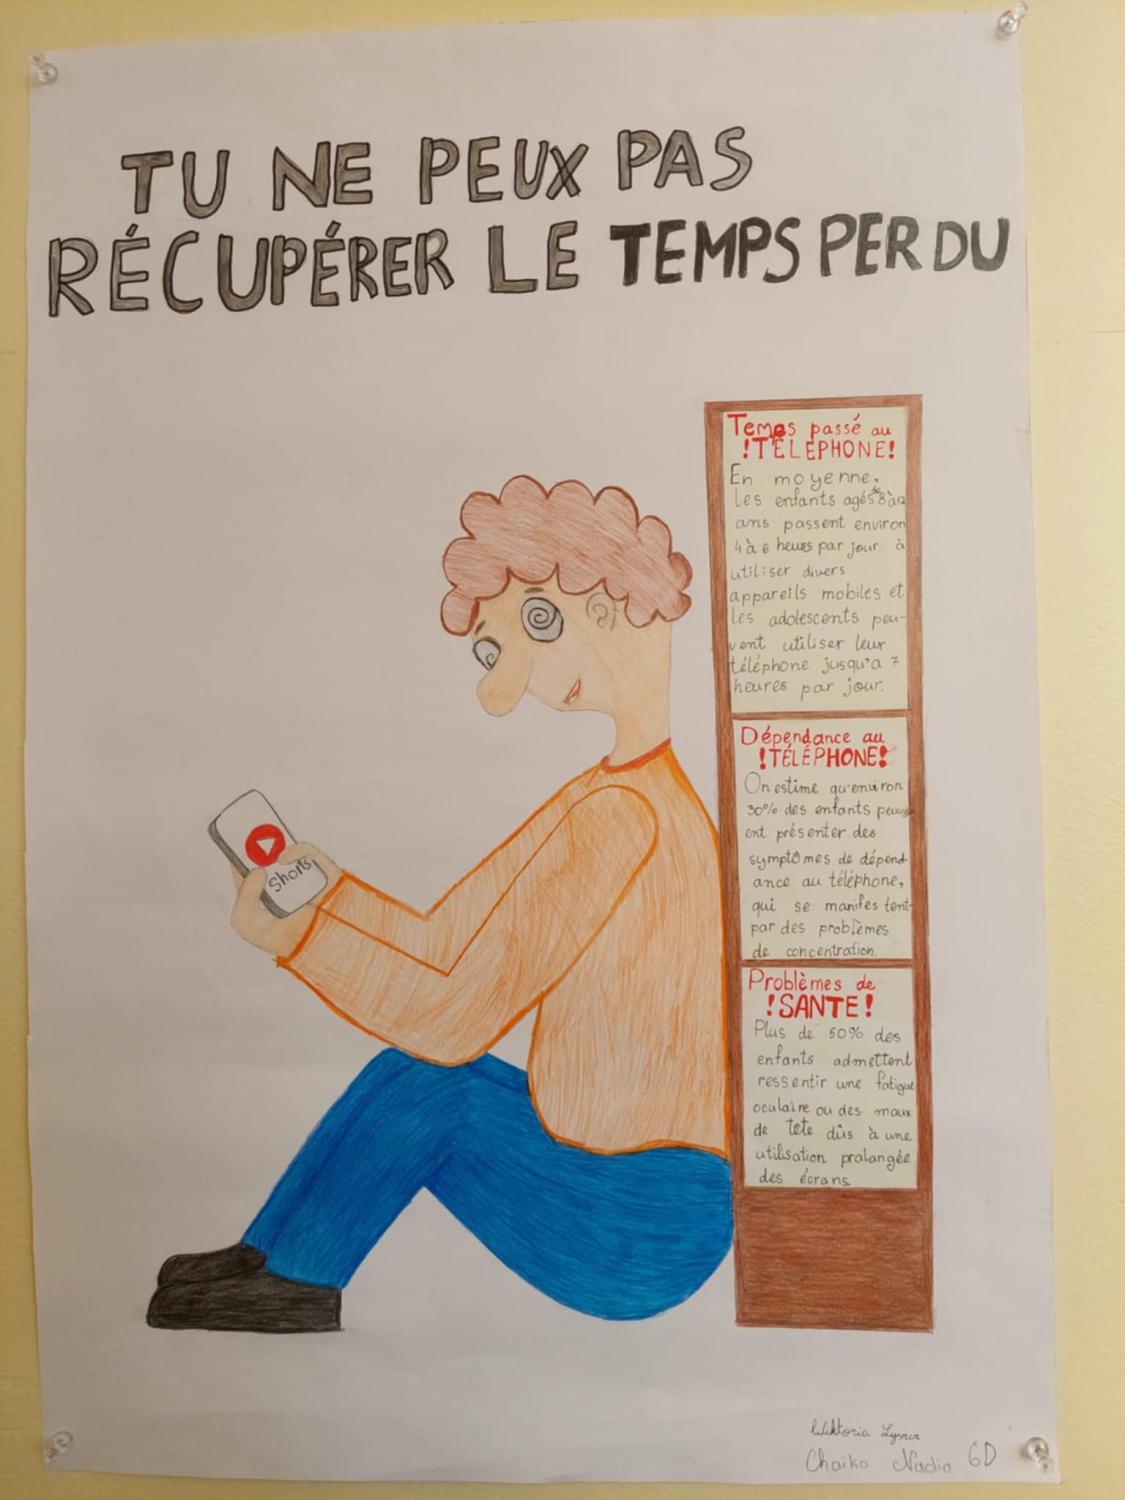 TU NE PEUX PAS
RÉCUPÉRER LE TEMPS PERDU
Temps passé au
!TÉLÉPHONE!
En moyenne,
les enfants agés de 8 à 12
ans passent environ
4 à 6 heures par jour à
utiliser divers
appareils mobiles et
les adolescents peu-
vent utiliser leur
téléphone jusqu'a 7
heures par jour.
Dépendance au
!TÉLÉPHONE!
On estime qu'environ
30% des enfants peuv
ent présenter des
symptômes de dépend
ance au téléphone,
qui se manifestent
par des problèmes
de concentration.
Problèmes de
!SANTE!
Plus de 50% des
enfants admettent
ressentir une fatigue
oculaire ou des maux
de tête dûs à une
utilisation pralangée
des écrans.
Shorts
Wiktoria
Chaiko Nadia 6D